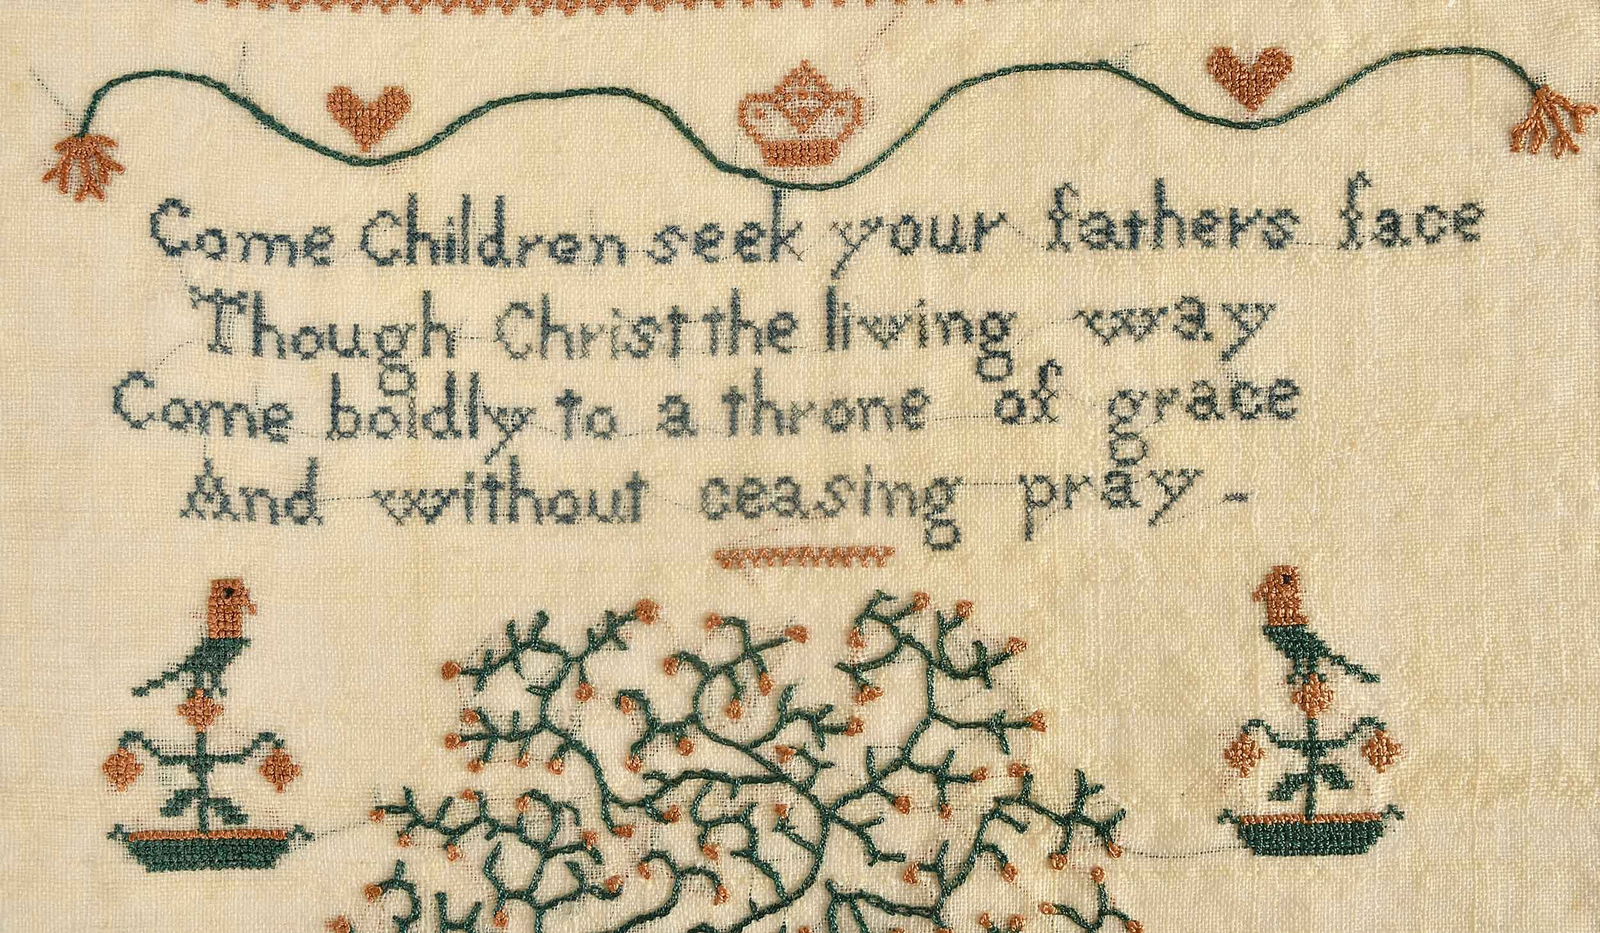 Come Children seek your fathers face
Though Christ the living way
Come boldly to a throne of grace
And without ceasing pray -